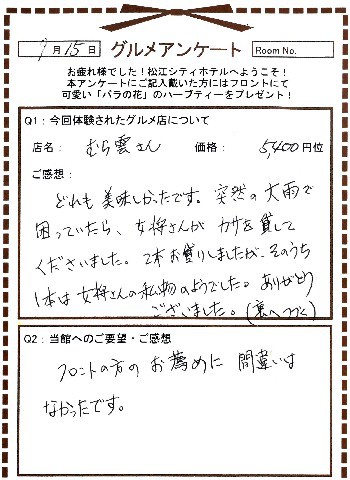 9月15日 グルメアンケート Room No.
お疲れ様でした！松江シティホテルへようこそ！
本アンケートにご記入戴いた方にはフロントにて
可愛い「バラの花」のハーブティーをプレゼント！
Q1：今回体験されたグルメ店について
店名： むら雲さん 価格： 5,400円位
ご感想：
どれも美味しかったです。突然の大雨で
困っていたら、女将さんがカサを貸して
くださいました。2本お借りしましたが、そのうち
1本は女将さんの私物のようでした。ありがとう
ございました。（裏へつづく）
Q2：当館へのご要望・ご感想
フロントの方のお薦めに間違いは
なかったです。